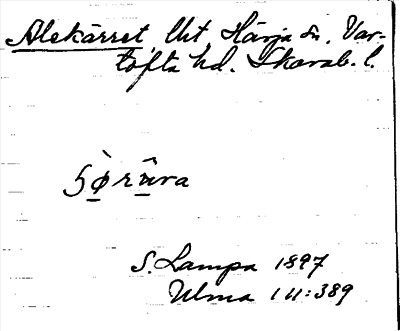 Alekärret, Uht, Härja sn. Var-
tofta hd. Skarab. l.
sø̱̀rṵ̂va
S. Lampa 1897
Ulma 111:389